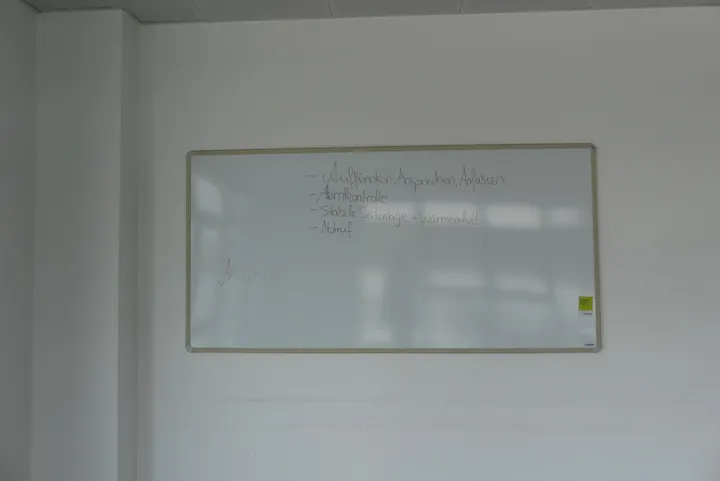 - Auffinden, Ansprechen, Anfassen
- Atemkontrolle
- Stabile Seitenlage + Wärmeerhalt
- Notruf